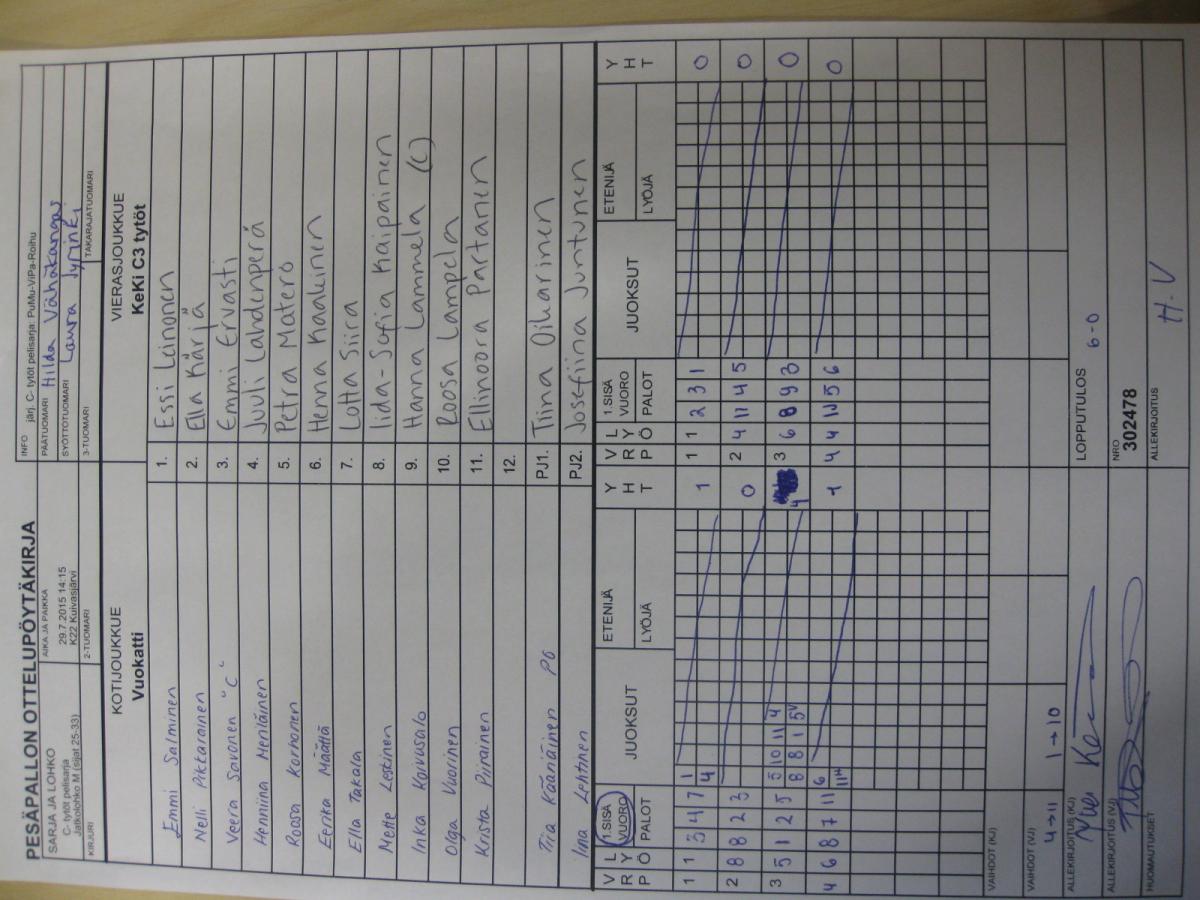 PESÄPALLON OTTELUPÖYTÄKIRJA
SARJA JA LOHKO
C- tytöt pelisarja
Jatkolohko M (sijat 25-33)
AIKA JA PAIKKA
29.7.2015 14:15
K22 Kuivasjärvi
INFO järj. C- tytöt pelisarja: PuMu-ViPa-Roihu
PÄÄTUOMARI Hilda Vähäkangas
SYÖTTÖTUOMARI Laura Jyrinki
KIRJURI
2-TUOMARI
3-TUOMARI
TAKARAJATUOMARI
KOTIJOUKKUE
Vuokatti
VIERASJOUKKUE
KeKi C3 tytöt
Emmi Salminen 1. Essi Leinonen
Nelli Pikkarainen 2. Ella Kärjä
Veera Savonen "C" 3. Emmi Ervasti
Henniina Meriläinen 4. Juuli Lahdenperä
Roosa Korhonen 5. Petra Matero
Eerika Määttä 6. Henna Kaakinen
Ella Takala 7. Lotta Siira
Mette Lestinen 8. Iida-Sofia Kaipainen
Inka Koivusalo 9. Hanna Lammela (C)
Olga Vuorinen 10. Roosa Lampela
Krista Piirainen 11. Ellinoora Partanen
12.
Tiia Kääriäinen PO PJ1. Tiina Oikarinen
Iina Lehtinen PJ2. Josefiina Juntunen
V R P
L Y Ö
1.SISÄ VUORO
PALOT
JUOKSUT
ETENIJÄ
LYÖJÄ
Y H T
V R P
L Y Ö
1.SISÄ VUORO
PALOT
JUOKSUT
ETENIJÄ
LYÖJÄ
Y H T
1 1 5 4 7 1 4 1
1 1 2 3 1 0
2 8 8 2 3 0
2 4 11 4 5 0
3 5 1 2 5 5 10 11 4 8 8 1 5 4
3 6 8 9 3 0
4 6 8 7 11 6 11 1
4 4 11 5 6 0
VAIHDOT (KJ)
VAIHDOT (VJ) 4→11 1→10
ALLEKIRJOITUS (KJ)
LOPPUTULOS 6-0
ALLEKIRJOITUS (VJ)
NRO
302478
HUOMAUTUKSET
ALLEKIRJOITUS H.V